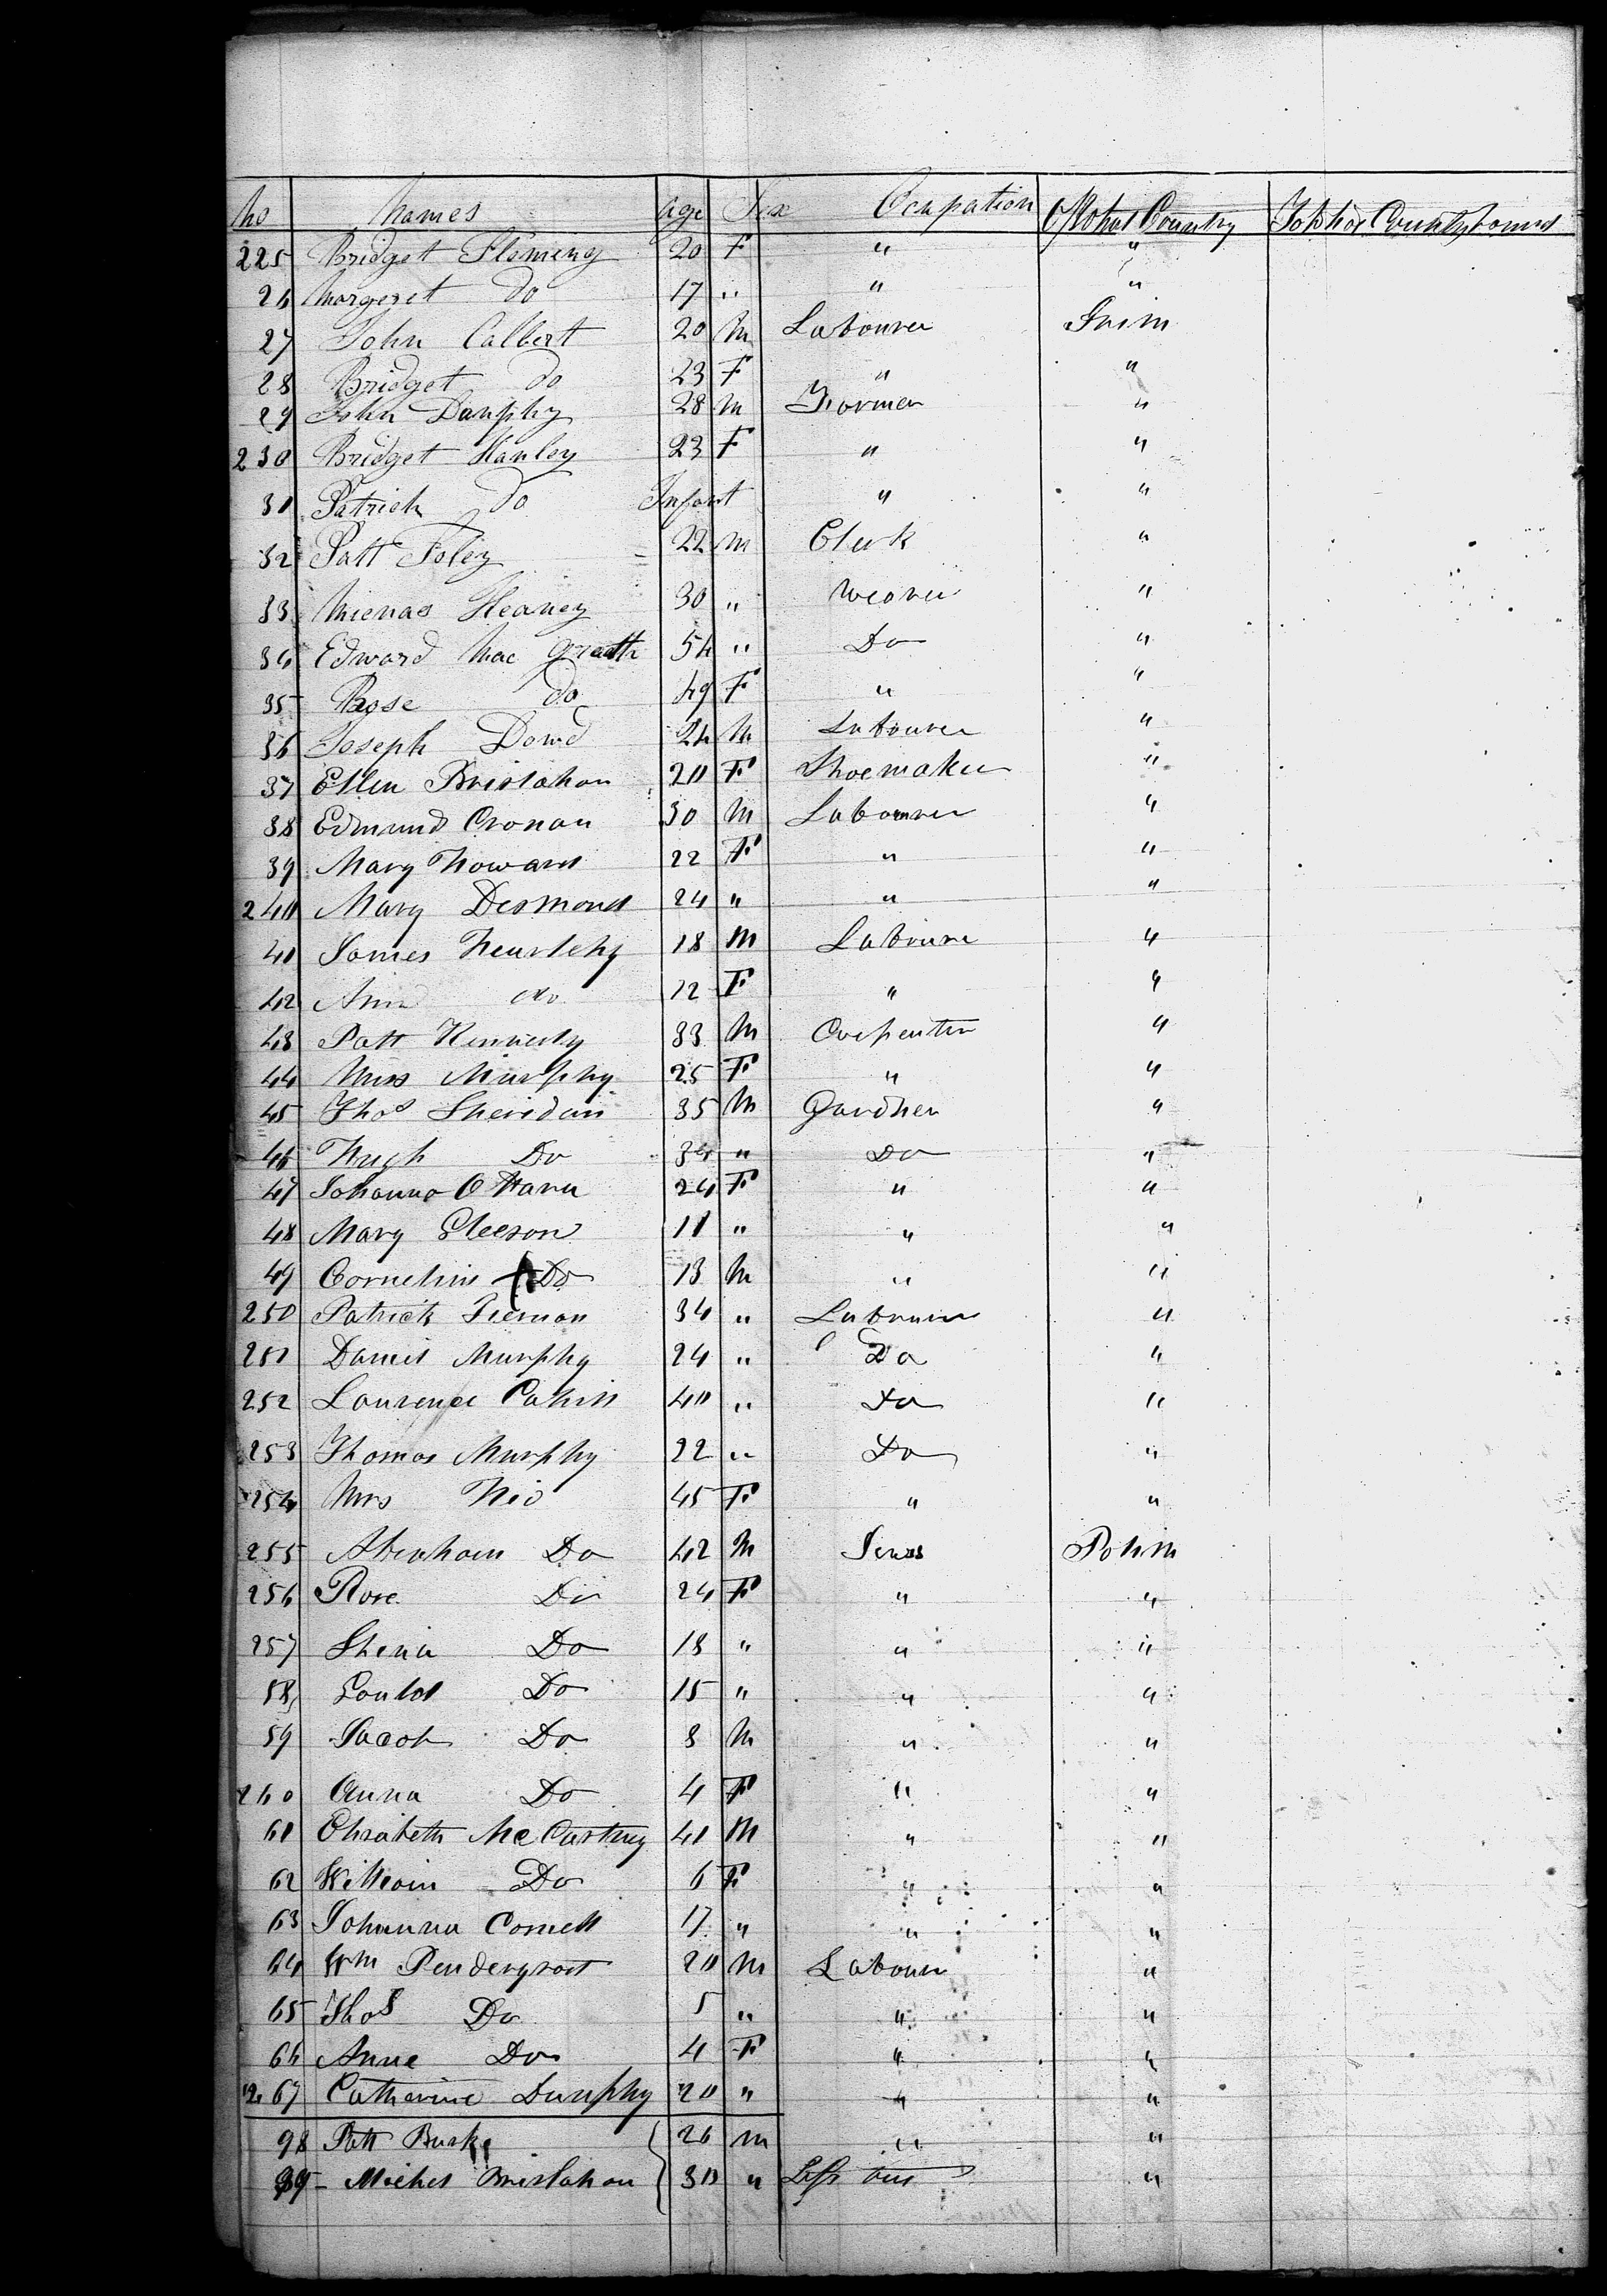 No Names age Sex Ocupation Of What Country To Whos Country bound
225 Bridget Fleming 20 F " "
26 Margeret Do 17 " " "
27 John Calbert 20 M Labourer Irim
28 Bridget Do 23 F " "
29 John Dunphy 28 M Farmer "
230 Bridget Hanley 23 F " "
31 Patrick Do Infant " "
32 Patt Foley 22 M Clerk "
33 Heaney 30 " Weaver "
34 Edward Mac Grath 54 " Do "
35 Rose Do 49 F " "
36 Joseph Dowd 24 M Labourer "
37 Ellen Brislahan 20 F Shoemaker "
38 Edmund Cronan 30 M Labourer "
39 Mary Howard 22 F " "
240 Mary Desmond 24 " " "
41 James 18 M Labourer "
42 Ann do 12 F " "
43 Patt Kennedy 33 M Carpenter "
44 Miss Murphy 25 F " "
45 Thos Sheridan 35 M Gardner "
46 Hugh Do 34 " Do "
47 Johanna O Hara 24 F " "
48 Mary Gleeson 11 " " "
49 Cornelius Do 13 M " "
250 Patrick Tiernan 34 " Labourer "
251 Daniel Murphy 24 " Do "
252 Laurence Cahill 40 " Do "
253 Thomas Murphy 22 " Do "
254 Mrs 45 F " "
255 Abraham Do 42 M Jews Polin
256 Rose Do 24 F " "
257 Do 18 " " "
58 Do 15 " " "
59 Jacob Do 8 M " "
260 Anna Do 4 F " "
61 Elisabeth McCartney 40 M " "
62 William Do 6 F " "
63 Johanna Cornell 17 " " "
64 Wm Pendergrast 20 M Labourer "
65 Thos Do 5 " " "
66 Anne Do 4 F " "
267 Catherine Dunphy 20 " " "
98 Patt Burke 26 M " "
99 Michel Brislahan 30 " Left "